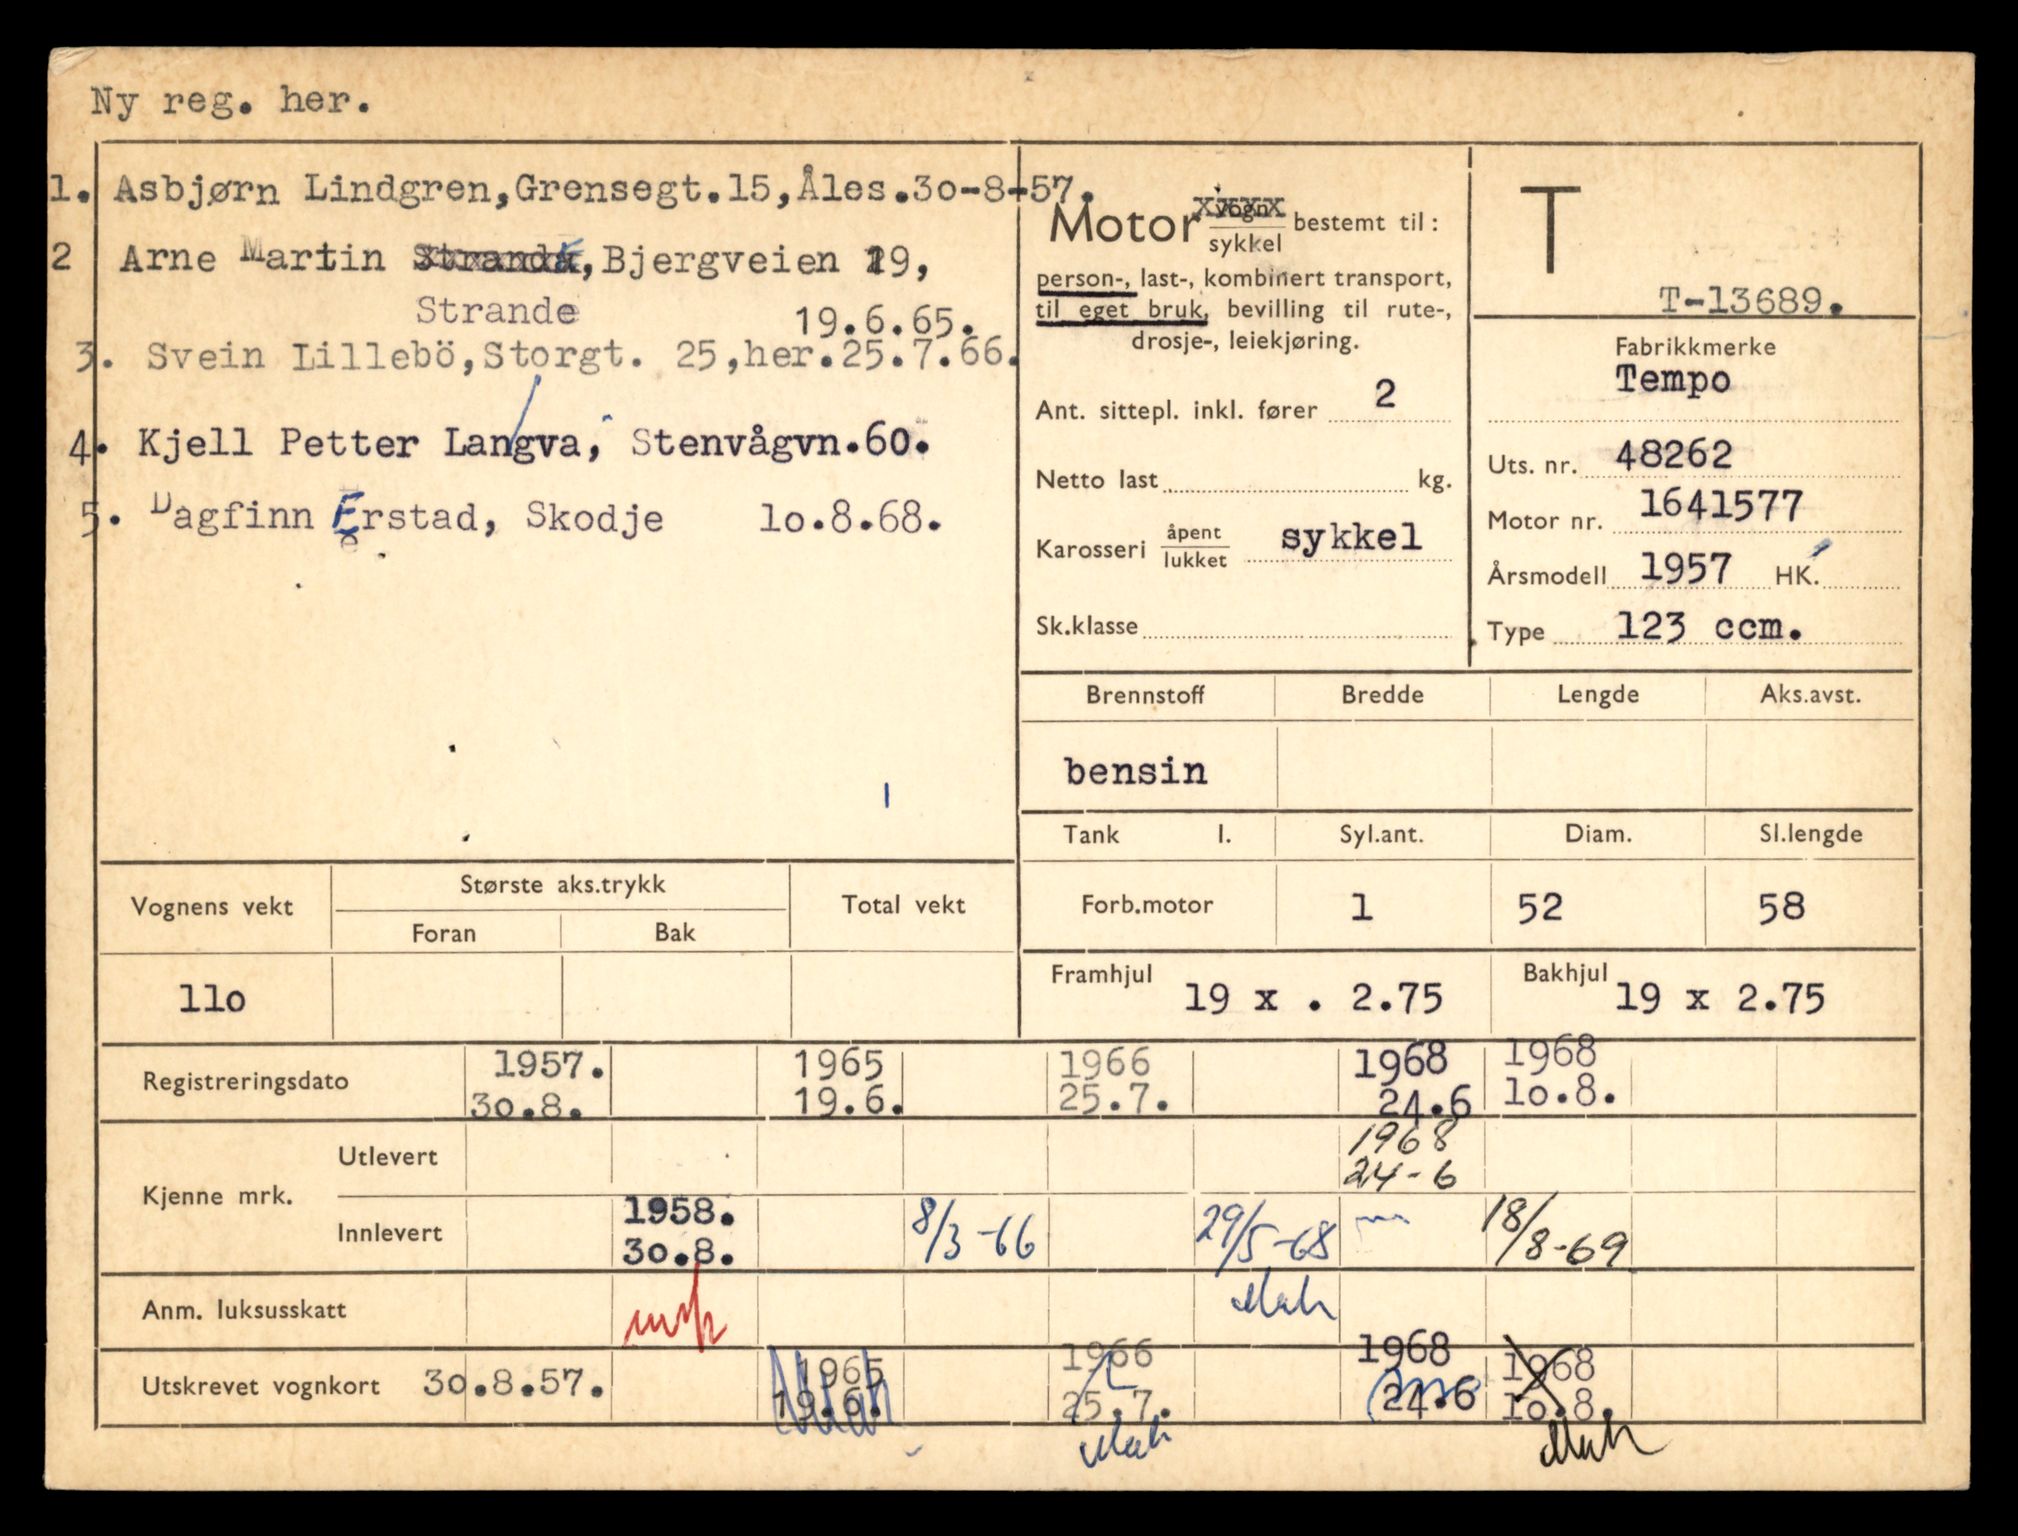 Ny reg. her.
1. Asbjørn Lindgren,Grensegt.15,Åles.3o-8-57.
2 Arne Martin Stranda,Bjergveien 19,
Strande 19.6.65.
3. Svein Lillebö,Storgt. 25,her.25.7.66.
4. Kjell Petter Langva, Stenvågvn.60.
5. Dagfinn Erstad, Skodje 1o.8.68.
Motor vogn sykkel bestemt til:
person-, last-, kombinert transport,
til eget bruk, bevilling til rute-,
drosje-, leiekjøring.
Ant. sittepl. inkl. fører 2
Netto last kg.
Karosseri åpent lukket sykkel
Sk.klasse
T
T-13689.
Fabrikkmerke
Tempo
Uts. nr. 48262
Motor nr. 1641577
Årsmodell 1957 HK.
Type 123 ccm.
Brennstoff Bredde Lengde Aks.avst.
bensin
Tank l. Syl.ant. Diam. Sl.lengde
Forb.motor 1 52 58
Framhjul 19 x . 2.75 Bakhjul 19 x 2.75
Vognens vekt Største aks.trykk Total vekt
Foran Bak
11o
Registreringsdato 1957. 1965 1966 1968 1968
3o.8. 19.6. 25.7. 24.6 1o.8.
Kjenne mrk. Utlevert 1968
24-6
Innlevert 1958. 8/3-66 29/5-68 18/8-69
3o.8.
Anm. luksusskatt
Utskrevet vognkort 3o.8.57. 1965 1966 1968 1968
19.6. 25.7. 24.6 1o.8.